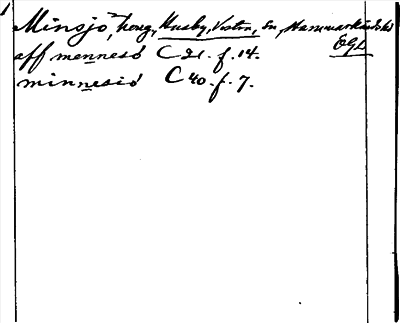 Minsjö, heng, Husby, Västra, sn, Hammarkinds hd
ÖGL
aff mennesö C 21. f. 14.
minnesiö C 40. f. 7.